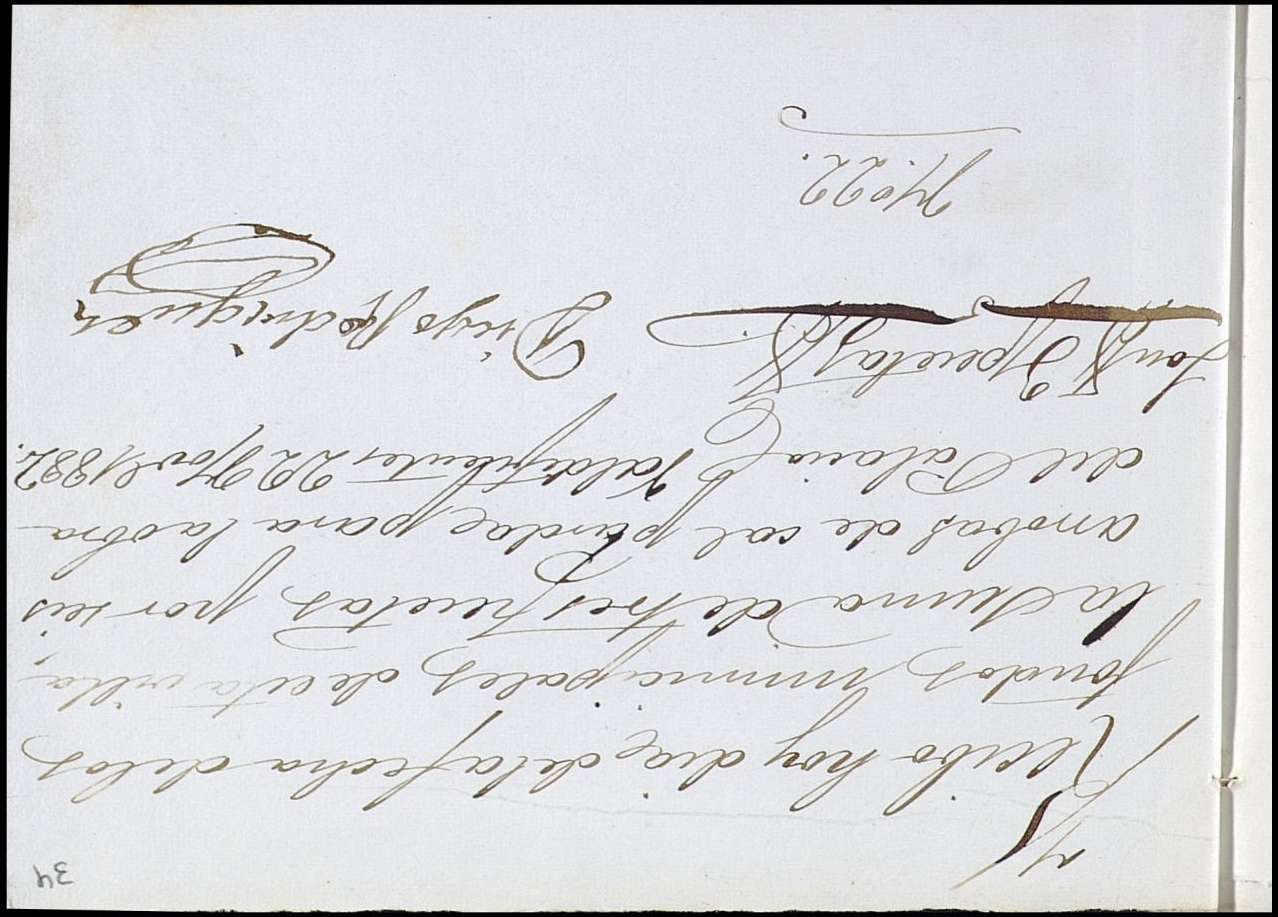 34
Recibo hoy dia de la fecha de los
fondos municipales de esta villa,
la suma de tres pesetas por seis
arrobas de cal parda para la obra
del Palacio Valdefuentes 22 Nov.e 1882.
Son 3 pesetas
Diego Rodriguez
Nº 22.